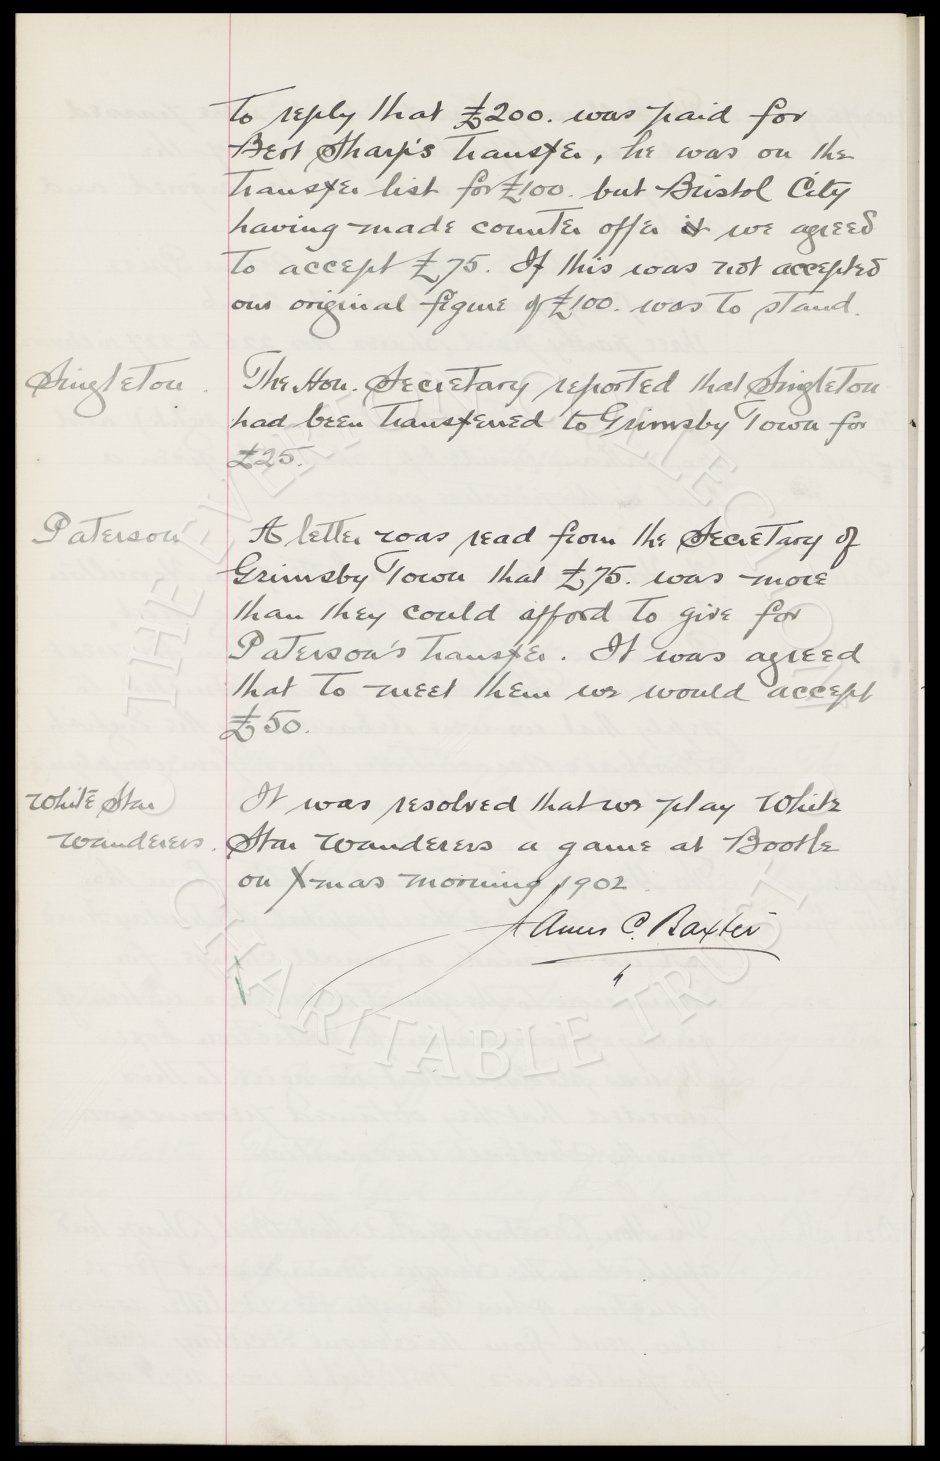 to reply that £200. was paid for
Bert Sharp's transfer, he was on the
transfer list for £100. but Bristol City
having made counter offer we agreed
to accept £75. If this was not accepted
our original figure of £100. was to stand.
Singleton. The Hon. Secretary reported that Singleton
had been transferred to Grimsby Town for
£25.
Paterson. A letter was read from the Secretary of
Grimsby Town that £75. was more
than they could afford to give for
Paterson's transfer. It was agreed
that to meet them we would accept
£50.
White Star It was resolved that we play White
Wanderers. Star Wanderers a game at Bootle
on X-mas morning 1902.
James C. Baxter
THE EVERTON COLLECTION
CHARITABLE TRUST